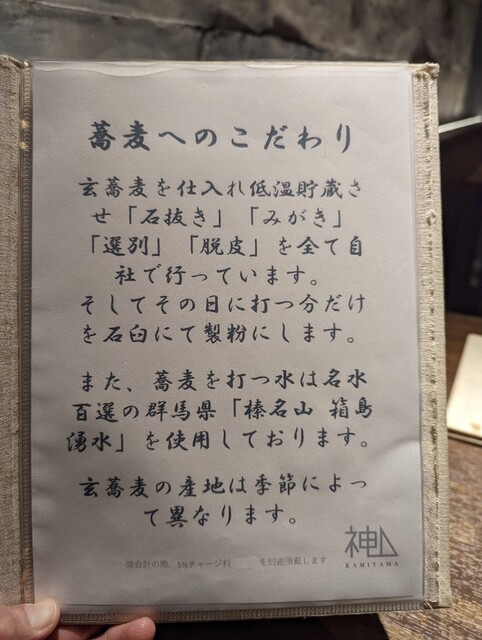 蕎麦へのこだわり
玄蕎麦を仕入れ低温貯蔵さ
せ「石抜き」「みがき」
「選別」「脱皮」を全て自
社で行っています。
そしてその日に打つ分だけ
を石臼にて製粉にします。
また、蕎麦を打つ水は名水
百選の群馬県「榛名山 箱島
湧水」を使用しております。
玄蕎麦の産地は季節によっ
て異なります。
神山
KAMIYAMA
御会計の際、5%チャージ料 を別途頂戴します